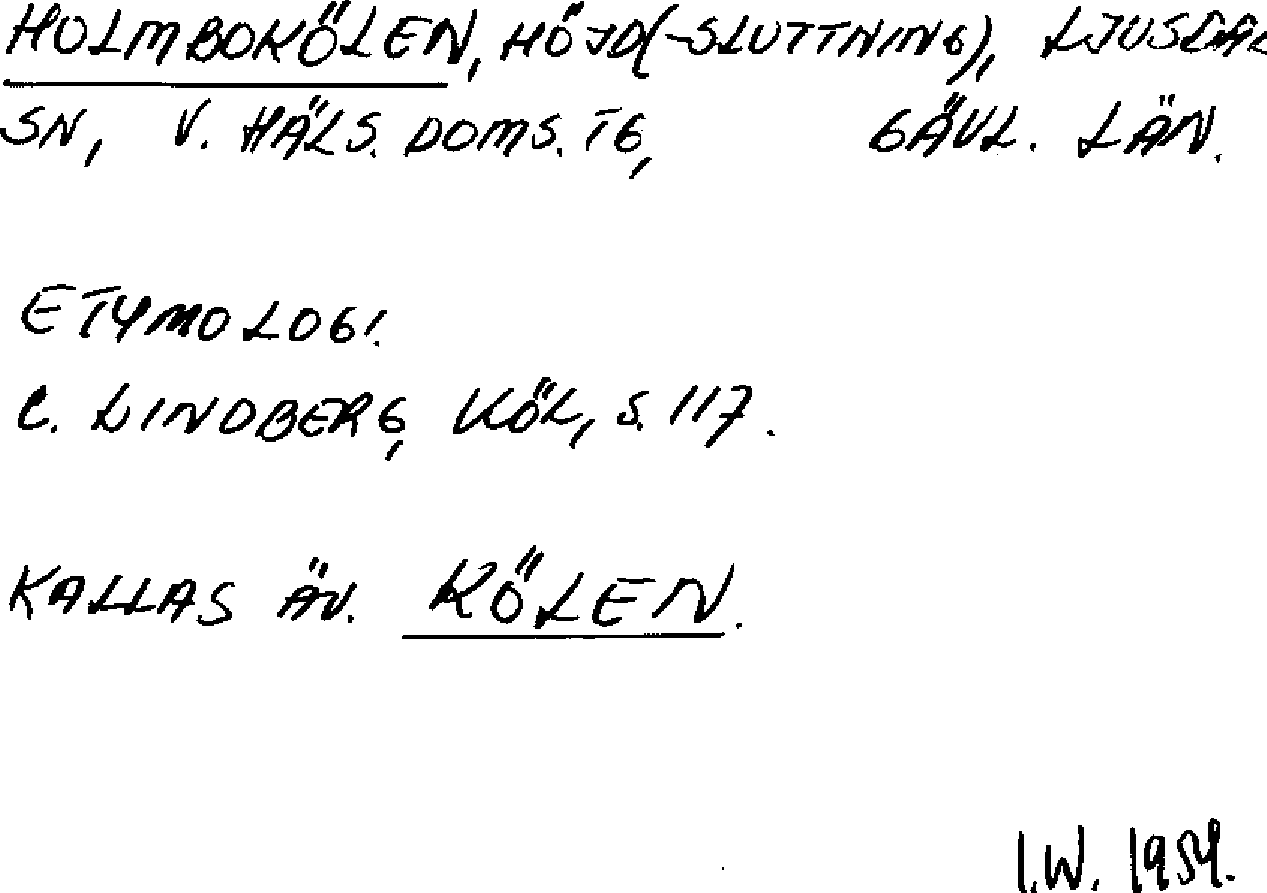 HOLMBOKÖLEN, HÖJD(-SLUTTNING), LJUSDAL
SN, V. HÄLS. DOMS. TG, GÄVL. LÄN.
ETYMOLOGI.
C. LINDBERG, KÖL, S. 117.
KALLAS ÄV. KÖLEN.
I.W. 1954.